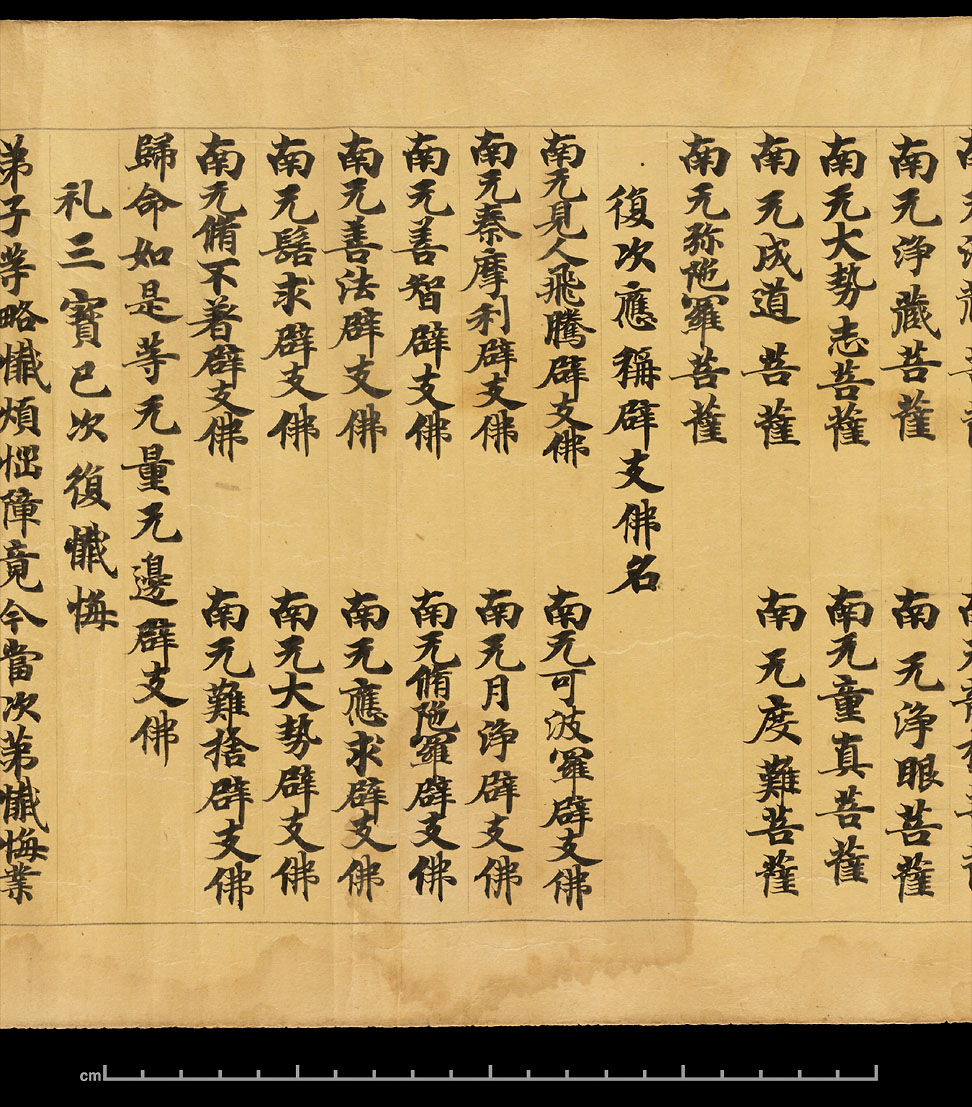 南无淨藏菩薩　南无淨眼菩薩
南无大勢志菩薩　南无童真菩薩
南无成道菩薩　南无度難菩薩
南无弥陁羅菩薩
復次應稱辟支佛名
南无見人飛騰辟支佛　南无可波羅辟支佛
南无秦摩利辟支佛　南无月淨辟支佛
南无善智辟支佛　南无脩陁羅辟支佛
南无善法辟支佛　南无應求辟支佛
南无髻求辟支佛　南无大勢辟支佛
南无脩不著辟支佛　南无難捨辟支佛
歸命如是等无量无邊辟支佛
礼三寶已次復懺悔
弟子等略懺煩惱障竟今當次第懺悔業
cm